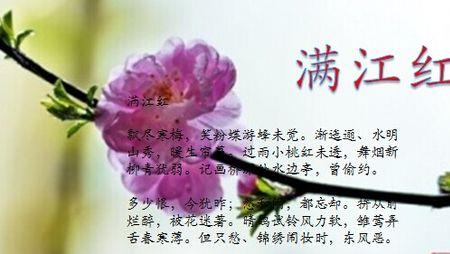 满江红
满江红
飘尽寒梅，笑粉蝶游蜂未觉。渐迤逦、水明
山秀，暖生帘幕。过雨小桃红未透，舞烟新
柳青犹弱。记画桥深处水边亭，曾偷约。
多少恨，今犹昨；愁和闷，都忘却。拼从前
烂醉，被花迷著。晴鸽试铃风力软，雏莺弄
舌春寒薄。但只愁、锦绣闹妆时，东风恶。